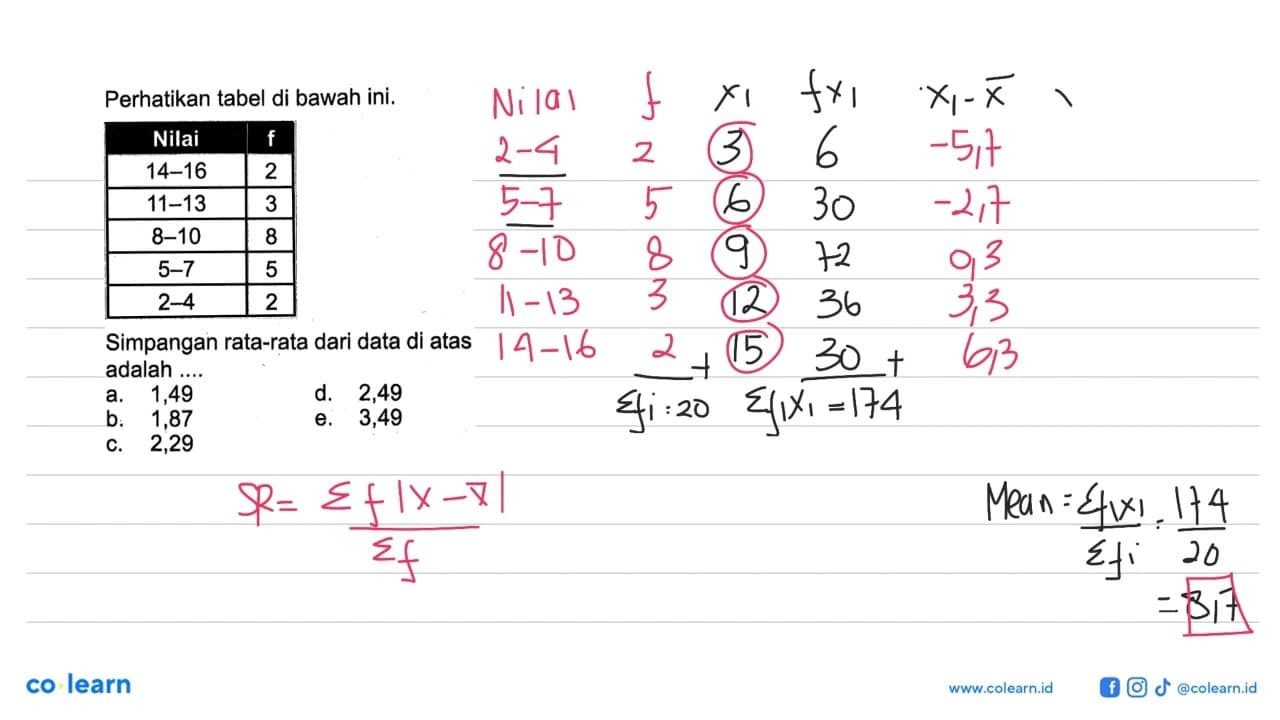 Perhatikan tabel di bawah ini.
Nilai f
14–16 2
11–13 3
8–10 8
5–7 5
2–4 2
Simpangan rata-rata dari data di atas
adalah ....
a. 1,49 d. 2,49
b. 1,87 e. 3,49
c. 2,29
Nilai f x₁ fx₁ x₁-x̄ \
2-4 2 3 6 -5,7
5-7 5 6 30 -2,7
8-10 8 9 72 0,3
11-13 3 12 36 3,3
14-16 2 + 15 30 + 6,3
Σfi : 20 Σf₁x₁ = 174
SR = Σf|x-x̄|
Σf
Mean = Σf₁x₁ = 174
Σfi 20
= 8,7
co learn
www.colearn.id @colearn.id